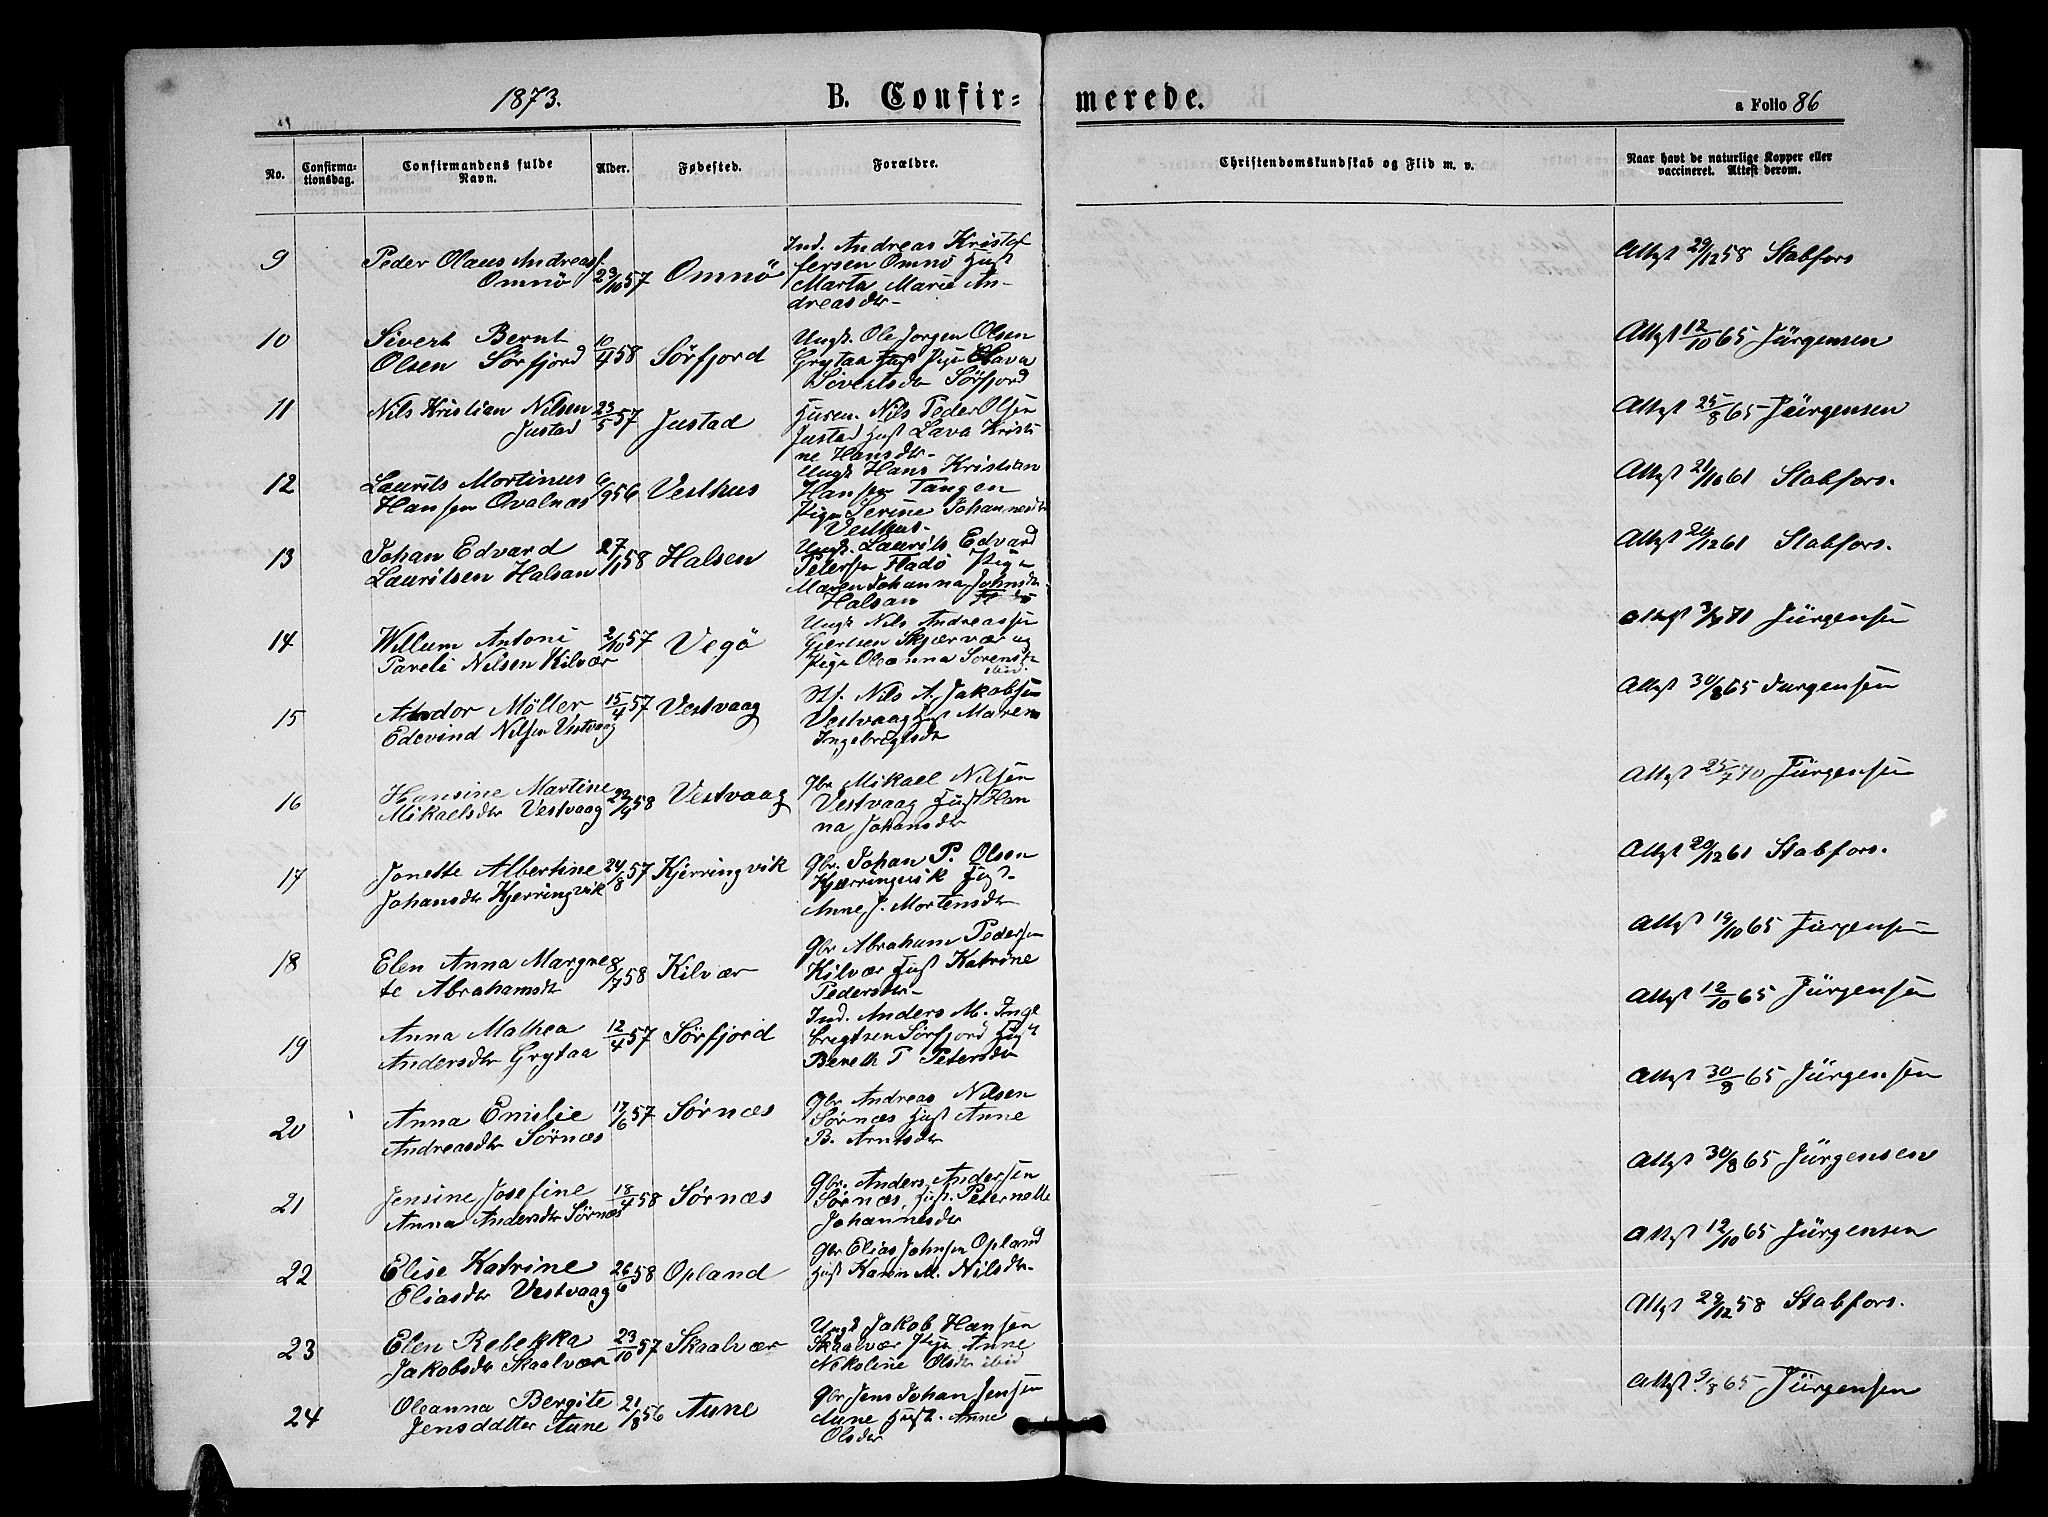 1873.
B. Confir=
merede.
a Folio 86
No.
Confirma-
tionsdag.
Confirmandens fulde
Navn.
Alder.
Fødested.
Forældre.
Christendomskundskab og Flid m. v.
Naar havt de naturlige Kopper eller
vaccineret. Attest derom.
9 Peder Olaus Andreas
Omnö
23/10 57 Omnö
Ind. Andreas Kristof
fersen Omnö Hust
Marta Marie An-
dreasdtr-
Attest 29/12 58 Stabfors
10 Sivert Bernt
Olsen Sörfjord
10/4 58 Sörfjord
Ungk. Ole Jorgen Olsen
Grytaa Pige Lava
Sivertsdtr Sörfjord
Attest 12/10 65 Jürgensen
11 Nils Kristian Nilsen
Justad
23/5 57 Justad
Husm. Nils Peder Olsen
Justad Hust Lava Kristi
ne Hansdtr-
Attest 25/8 65 Jürgensen
12 Laurits Mortinus
Hansen Qvalnæs
6/9 56 Vesthus
Ungk Hans Kristian
Hansen Tangen
Pige Serine Johannesdtr
Vesthus-
Attest 21/10 61 Stabfors.
13 Johan Edvard
Lauritsen Halsan
27/1 58 Halsen
Ungk. Laurits Edvard
Petersen Fladö Pige
Maren Johanna Johnsdtr
Halsan
Attest 20/12 61 Stabfors.
14 Willum Antoni
Pareli Nilsen Kilvær
2/10 57 Vegö
Ungk Nils Andreassen
Gjertsen Skjærvær og
Pige Oleanna Sorensdtr
ibid.
Attest 3/7 71 Jürgensen
15 Andor Möller
Edevind Nilsen Vestvaag
15/4 57 Vestvaag
Nils A. Jakobsen
Vestvaag Hust Maren
Ingebrigtsdtr
Attest 30/8 65 Jurgensen
16 Hansine Martine
Mikaelsdtr Vestvaag
22/4 58 Vestvaag
Gbr Mikael Nilsen
Vestvaag Hust Han
na Johansdtr
Attest 25/7 70 Jürgensen
17 Jonette Albertine
Johansdtr Kjerringvik
24/8 57 Kjerringvik
Gbr. Johan P. Olsen
Kjærringvik Hust-
Anne J. Mortensdtr
Attest 20/12 61 Stabfors.
18 Elen Anna Margre
te Abrahamsdtr
8/7 58 Kilvær
Gbr Abraham Pedersen
Kilvær Hust Katrine
Pedersdtr-
Attest 19/10 65 Jürgensen
19 Anna Mathea
Andersdtr Grytaa
12/4 57 Sörfjord
Ind. Anders M. Inge
bregtsen Sörfjord Hust
Bereth P Petersdtr
Attest 12/10 65 Jürgensen
20 Anna Emilie
Andreasdtr Sörnæs
17/6 57 Sörnæs
Gbr Andreas Nilsen
Sörnæs Hust Anne
B. Arntsdtr
Attest 30/8 65 Jürgensen
21 Jensine Josefine
Anna Andersdtr Sörnæs
18/4 58 Sörnæs
Gbr. Anders Andersen
Sörnæs Hust. Peternelle
Johannesdtr
Attest 30/8 65 Jürgensen
22 Elise Katrine
Eliasdtr Vestvaag
26/6 58 Opland
Gbr Elias Johnsen Opland
Hust Karen M. Nilsdtr-
Attest 12/10 65 Jürgensen
23 Elen Rebekka
Jakobsdtr Skaalvær
23/10 57 Skaalvær
Ungk Jakob Hansen
Skaalvær Pige Anne
Nikoline Olsdtr ibid
Attest 29/12 58 Stabfors.
24 Oleanna Bergite
Jensdatter Aune
21/8 56 Aune
Gbr Jens Johan Jensen
Aune Hust. Anne
Olsdtr
Attest 65 Jürgensen